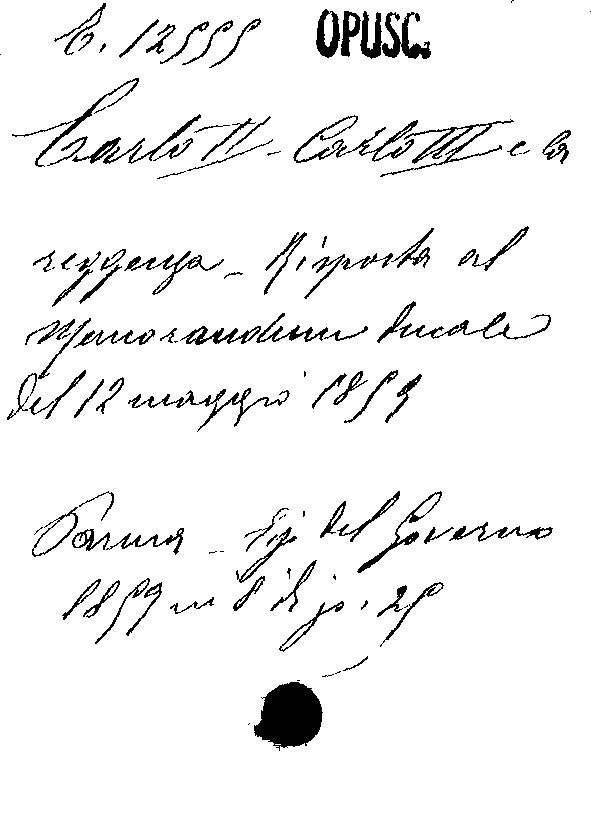 E. 12555 OPUSC.
Carlo II - Carlo III e la
reggenza - Risposta al
Memorandum ducale
del 12 maggio 1859
Parma - Tip. del Governo
1859 in 8° di p. 25